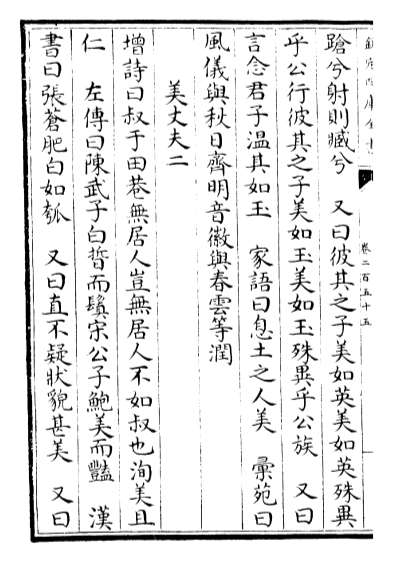 欽定四庫全書
卷二百五十五
蹌兮射則臧兮　又曰彼其之子美如英美如英殊異
乎公行彼其之子美如玉美如玉殊異乎公族　又曰
言念君子温其如玉　家語曰息土之人美　彚苑曰
風儀與秋日齊明音徽與春雲等潤
美丈夫二
增詩曰叔于田巷無居人豈無居人不如叔也洵美且
仁　左傳曰陳武子白晳而鬒宋公子鮑美而豔　漢
書曰張蒼肥白如瓠　又曰直不疑狀貌甚美　又曰